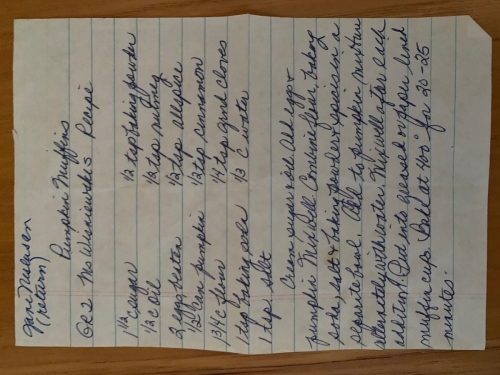 Jane
(return)
Pumpkin Muffins
Gr 2 Recipe
1 1/2 c sugar 1/2 tsp baking powder
1/2 c oil 1/2 tsp nutmeg
2 eggs beaten 1/2 tsp allspice
1/2 can pumpkin 1/2 tsp cinnamon
1 3/4 c flour 1/4 tsp grnd cloves
1 tsp baking soda 1/3 c water
1 tsp salt
Cream sugar & oil. Add eggs &
pumpkin. Mix well. Combine flour, baking
soda, salt & baking powder & spices in a
separate bowl. Add to pumpkin mixture
alternately with water. Mix well after each
addition. Put into greased or paper lined
muffin cups. Bake at 400° for 20-25
minutes.